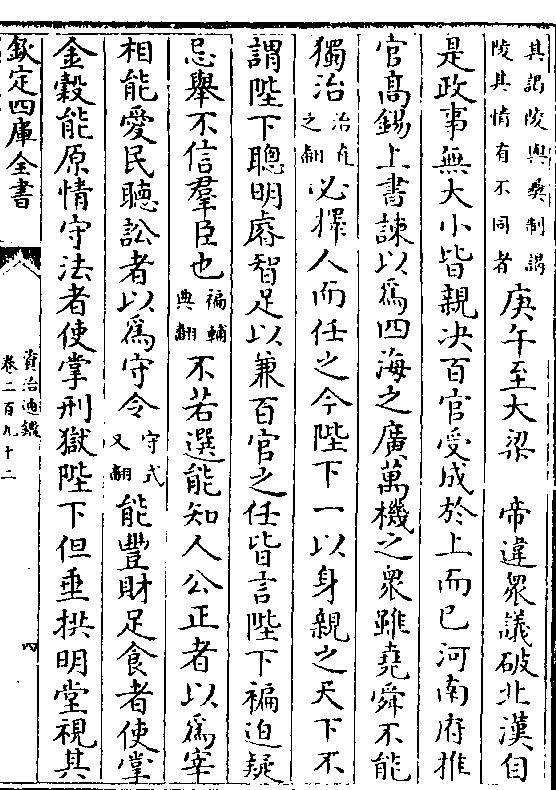 其謁陵與喪制謁
陵其情有不同者
庚午至大梁　帝違衆議破北漢自
是政事無大小皆親決百官受成於上而已河南府推
官高錫上書諫以爲四海之廣萬機之衆雖堯舜不能
獨治
治直
之翻
必擇人而任之今陛下一以身親之天下不
謂陛下聰明睿智足以兼百官之任皆言陛下褊迫疑
忌舉不信羣臣也
褊輔
典翻
不若選能知人公正者以爲宰
相能愛民聽訟者以爲守令
守式
又翻
能豐財足食者使掌
金穀能原情守法者使掌刑獄陛下但垂拱明堂視其
欽定四庫全書
資治通鑑
卷二百九十二
四